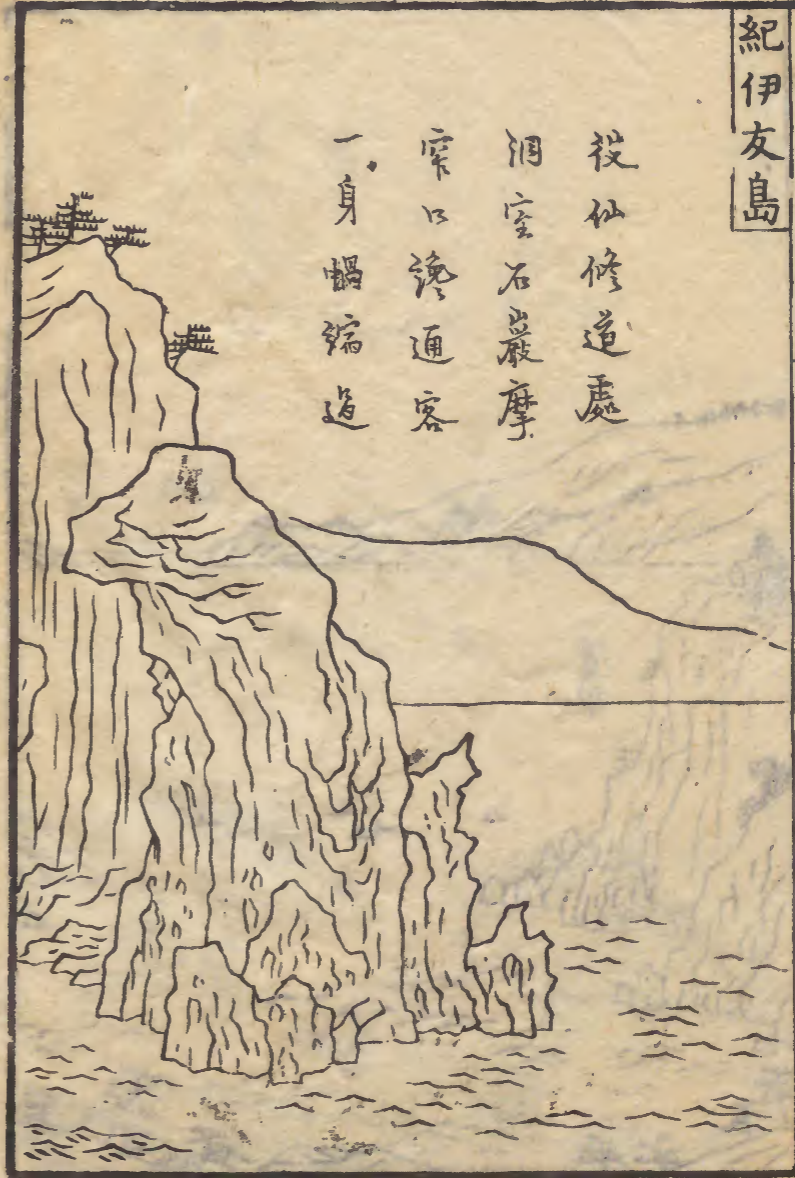 紀伊友島
役仙修道處
洞室石巖摩
窄口纔通客
一身蝸縮過